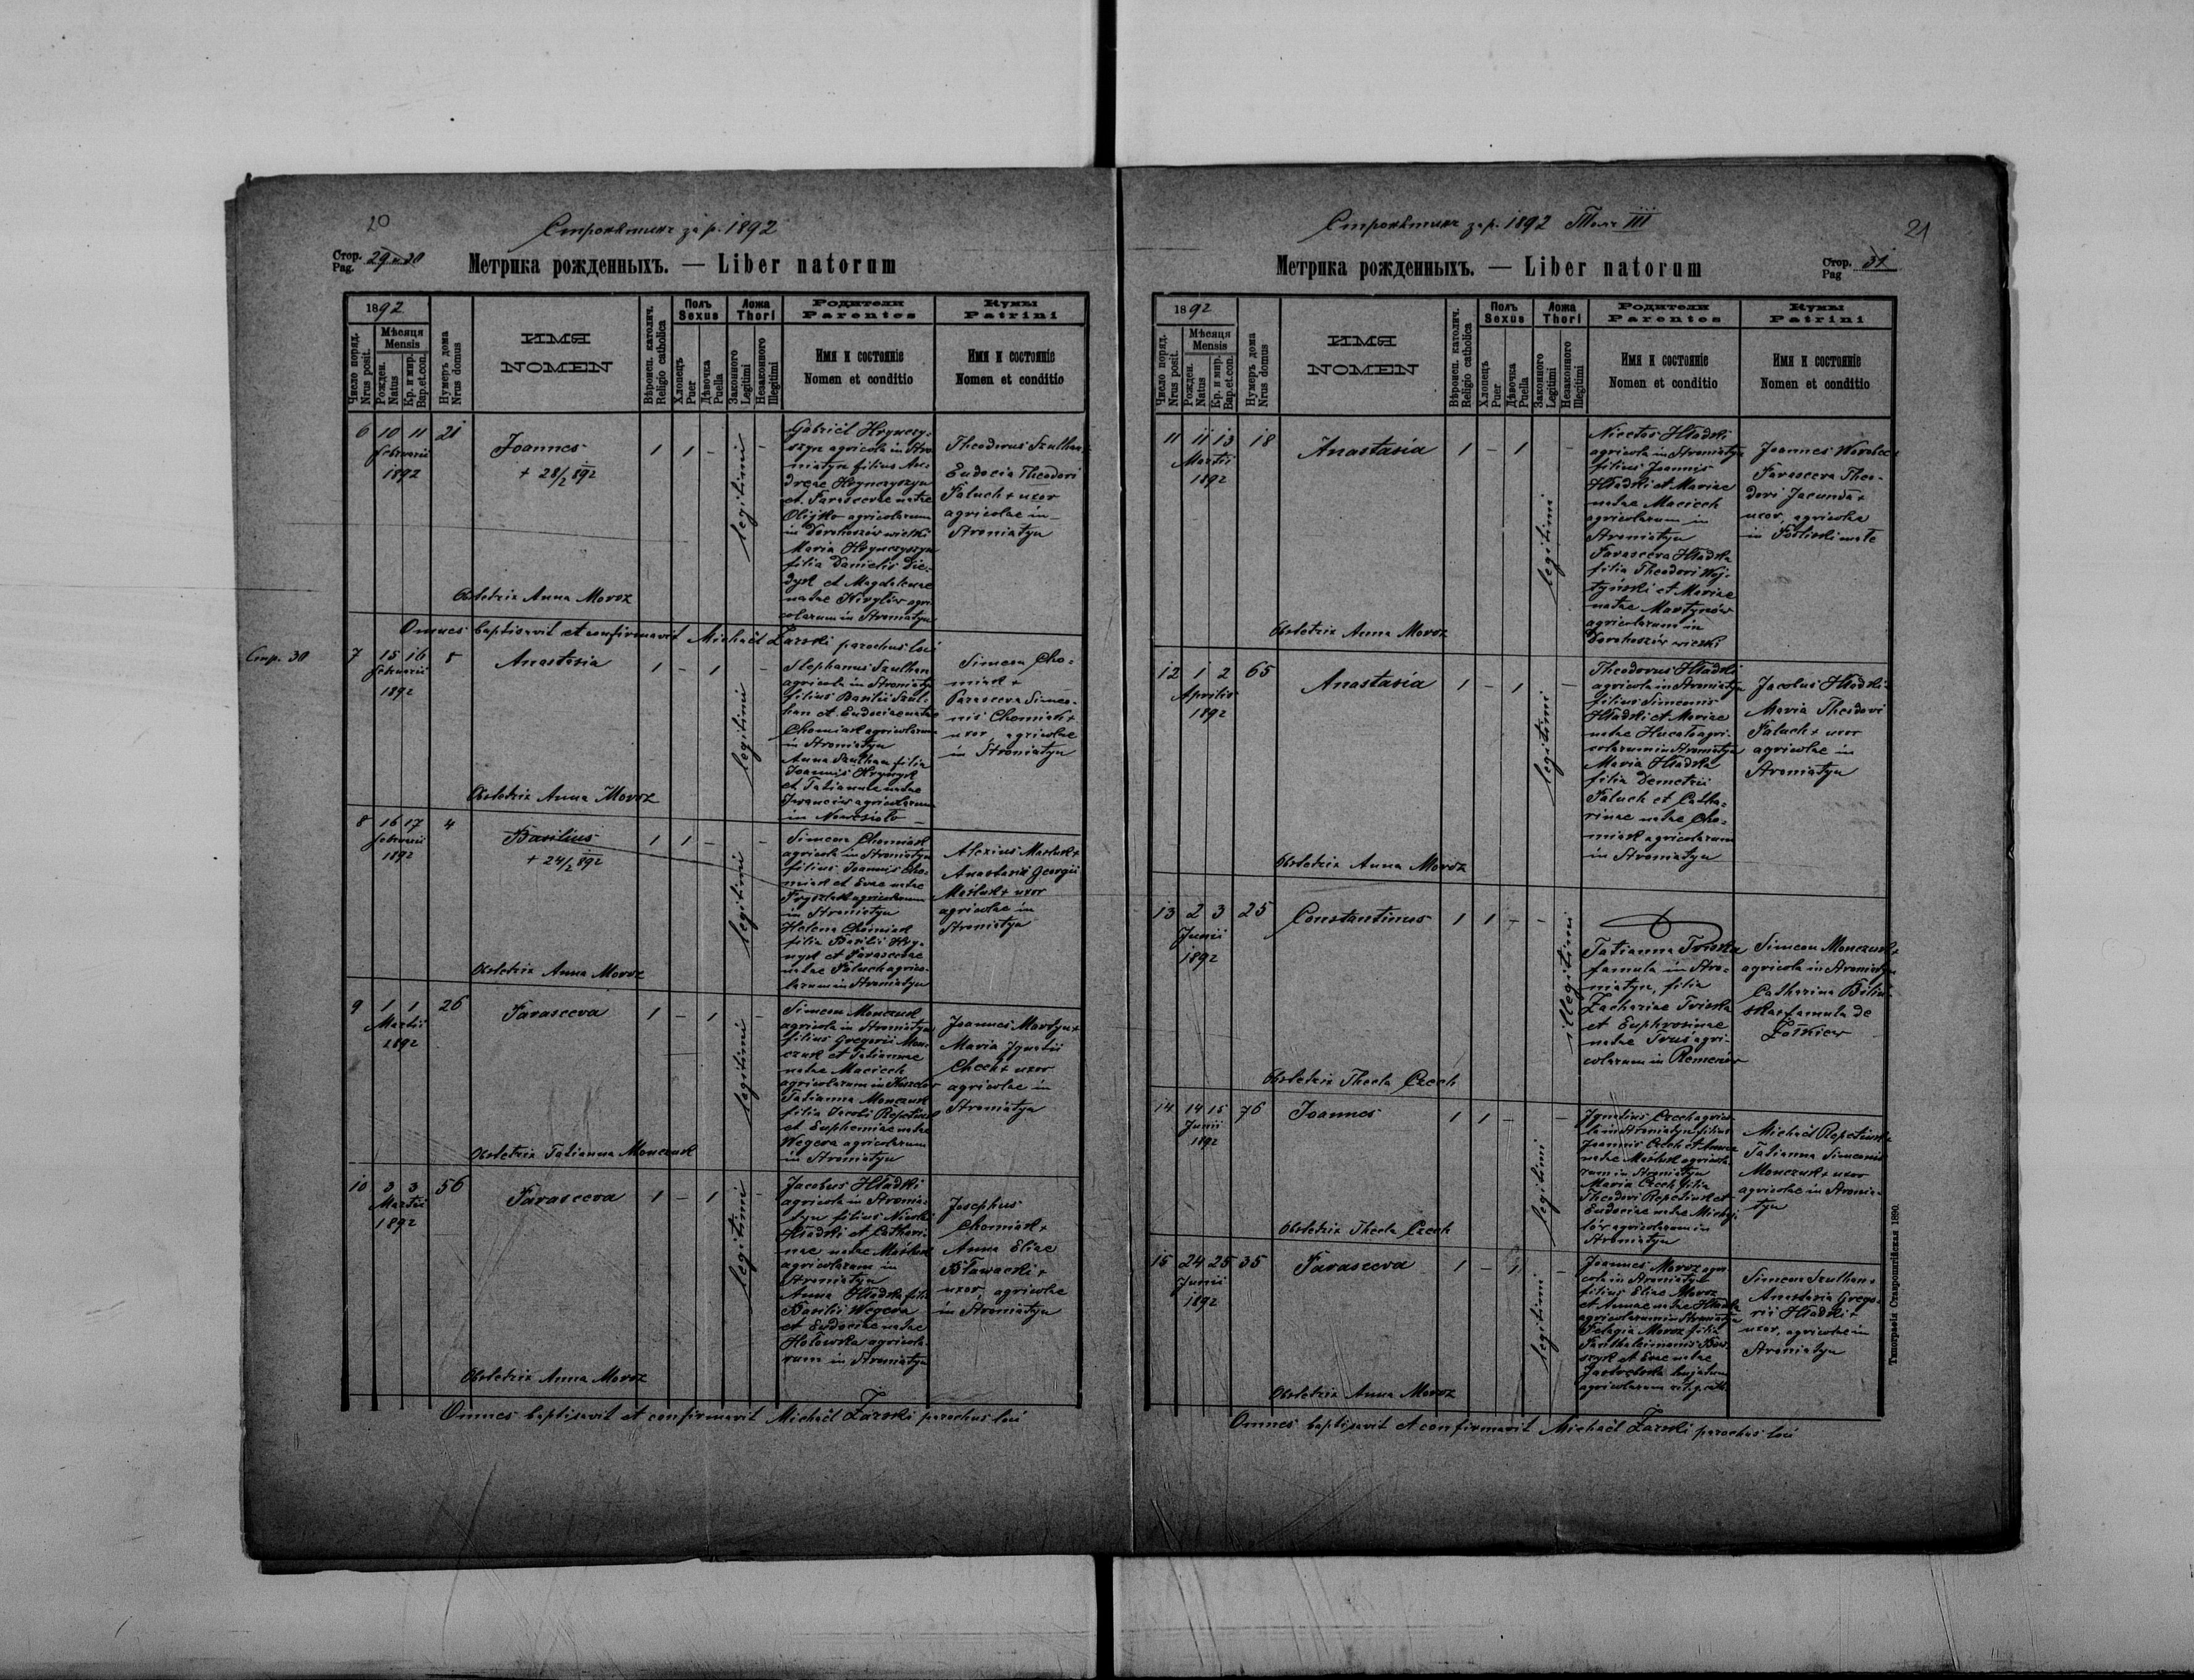 20
Стронятинъ за р. 1892
Стор. Pag. 29 и 30
Метрика рожденныхъ. — Liber natorum
1892
Число поряд. Nrus posit.
Мѣсяця Mensis
Рожден. Natus
Кр. и мир. Bap. et con.
Нумеръ дома Nrus domus
ИМЯ
NOMEN
Вѣроисп. католич. Religio catholica
Полъ Sexus
Хлопець Puer
Дѣвочка Puella
Ложа Thori
Законного Legitimi
Незаконного Illegitimi
Родители
Parentes
Имя и состоянie
Nomen et conditio
Кумы
Patrini
Имя и состоянie
Nomen et conditio
6 10 11 21
Februarii
1892
Joannes
+ 28/2 892
1 1 - legitimi -
Gabriël Hrynczy-
szyn agricola in Stro
niatyn filius An-
dreae Hrynczyszyn
et Parascevae natae
Olijko agricolarum
in Doroszów wielki
Maria Hrynczyszyn
filia Danielis Die-
dyk et Magdalenae
natae Kiryłów agri
colarum in Stroniatyn
Theodorus Szulhan
Eudocia Theodori
Paluch + uxor
agricolae in
Stroniatyn
Obstetrix Anna Moroz
Omnes baptisavit et confirmavit Michaël Żarski parochus loci
Стр. 30
7 15 16 8
Februarii
1892
Anastasia
1 - 1 legitimi -
Stephanus Szulhan
agricola in Stroniatyn
filius Basilii Szul-
han et Eudociae natae
Chomiak agricolarum
in Stroniatyn
Anna Szulhan filia
Joannis Hrynyk
et Tatiannae natae
Iwanciw agricolarum
in Nowesioło
Simeon Cho-
miak +
Parasceva Simeo-
nis Chomiak +
uxor, agricolae
in Stroniatyn
Obstetrix Anna Moroz
8 16 17 4
Februarii
1892
Basilius
+ 24/2 892
1 1 - legitimi -
Simeon Chomiak
agricola in Stroniatyn
filius Joannis Cho-
miak et Evae natae
agricolarum
in Stroniatyn
Helena Chomiak
filia Basilii Hry-
nyk et Parascevae
natae Paluch agrico-
larum in Stroniatyn
Alexius Maśluk +
Anastasia Georgii
Maśluk + uxor
agricolae in
Stroniatyn
Obstetrix Anna Moroz
9 1 1 26
Martii
1892
Parasceva
1 - 1 legitimi -
Simeon Monczuk
agricola in Stroniatyn
filius Gregorii Mon-
czuk et Tatiannae
natae Maciech
agricolarum in
Tatianna Monczuk
filia Jacobi Repetiuk
et Euphemiae natae
Wegera agricolarum
in Stroniatyn
Joannes Martyn +
Maria Ignatii
Chech + uxor
agricolae in
Stroniatyn
Obstetrix Tatianna Monczuk
10 3 3 56
Martii
1892
Parasceva
1 - 1 legitimi -
Jacobus Hładki
agricola in Stronia-
tyn filius Nicolai
Hładki et Cathari-
nae natae Maśluk
agricolarum in
Stroniatyn
Anna Hładka filia
Basilii Wegera
et Eudociae natae
Hołowka agricola-
rum in Stroniatyn
Josephus
Chomiak +
Anna Eliae
Bławacki +
uxor, agricolae
in Stroniatyn
Obstetrix Anna Moroz
Omnes baptisavit et confirmavit Michaël Żarski parochus loci
Стронятинъ за р. 1892 Томъ III
21
Метрика рожденныхъ. — Liber natorum
Стор. Pag 31
1892
Число поряд. Nrus posit.
Мѣсяця Mensis
Рожден. Natus
Кр. и мир. Bap. et con.
Нумеръ дома Nrus domus
ИМЯ
NOMEN
Вѣроисп. католич. Religio catholica
Полъ Sexus
Хлопець Puer
Дѣвочка Puella
Ложа Thori
Законного Legitimi
Незаконного Illegitimi
Родители
Parentes
Имя и состоянie
Nomen et conditio
Кумы
Patrini
Имя и состоянie
Nomen et conditio
11 11 13 18
Martii
1892
Anastasia
1 - 1 legitimi -
Nicetas Hładki
agricola in Stroniatyn
filius Joannis
Hładki et Mariae
natae Maciech
agricolarum in
Stroniatyn
Parasceva Hładka
filia Theodori Woj-
tyński et Mariae
natae Martynów
agricolarum in
Doroszów wielki
Joannes
Parasceva Theo-
dori Jacunda +
uxor, agricolae
in
Obstetrix Anna Moroz
12 1 2 65
Aprilis
1892
Anastasia
1 - 1 legitimi -
Theodorus Hładki
agricola in Stroniatyn
filius Simeonis
Hładki et Mariae
natae agri-
colarum in Stroniatyn
Maria Hładka
filia Demetrii
Paluch et Catha-
rinae natae Cho-
miak agricolarum
in Stroniatyn
Jacobus Hładki
Maria Theodori
Paluch + uxor
agricolae in
Stroniatyn
Obstetrix Anna Moroz
13 2 3 25
Junii
1892
Constantinus
1 1 - - illegitimi
Tatianna
famula in Stro-
niatyn, filia
Zachariae
et Euphrosinae
natae agri-
colarum in Remenów
Simeon Monczuk +
agricola in Stroniatyn
Catharina
famula de
Żołkiew
Obstetrix Thecla Czech
14 14 15 76
Junii
1892
Joannes
1 1 - legitimi -
Ignatius Czech agrico-
la in Stroniatyn filius
Joannis Czech et Annae
natae Maśluk agricola-
rum in Stroniatyn
Maria Czech filia
Theodori Repetiuk et
Eudociae natae
agricolarum in
Stroniatyn
Michaël Repetiuk +
Tatianna Simeonis
Monczuk + uxor
agricolae in Stronia-
tyn
Obstetrix Thecla Czech
15 24 25 35
Junii
1892
Parasceva
1 - 1 legitimi
Joannes Moroz agri-
cola in Stroniatyn
filius Eliae Moroz
et Annae natae Hładka
agricolarum in Stroniatyn
Pelagia Moroz filia
Panthaleimonis
et Evae natae
agricolarum rit. gr. cath.
Simeon Szulhan +
Anastasia Grego-
rii Hładki +
uxor, agricolae in
Stroniatyn
Obstetrix Anna Moroz
Omnes baptisavit et confirmavit Michaël Żarski parochus loci
Типографія Ставропигійская 1890.